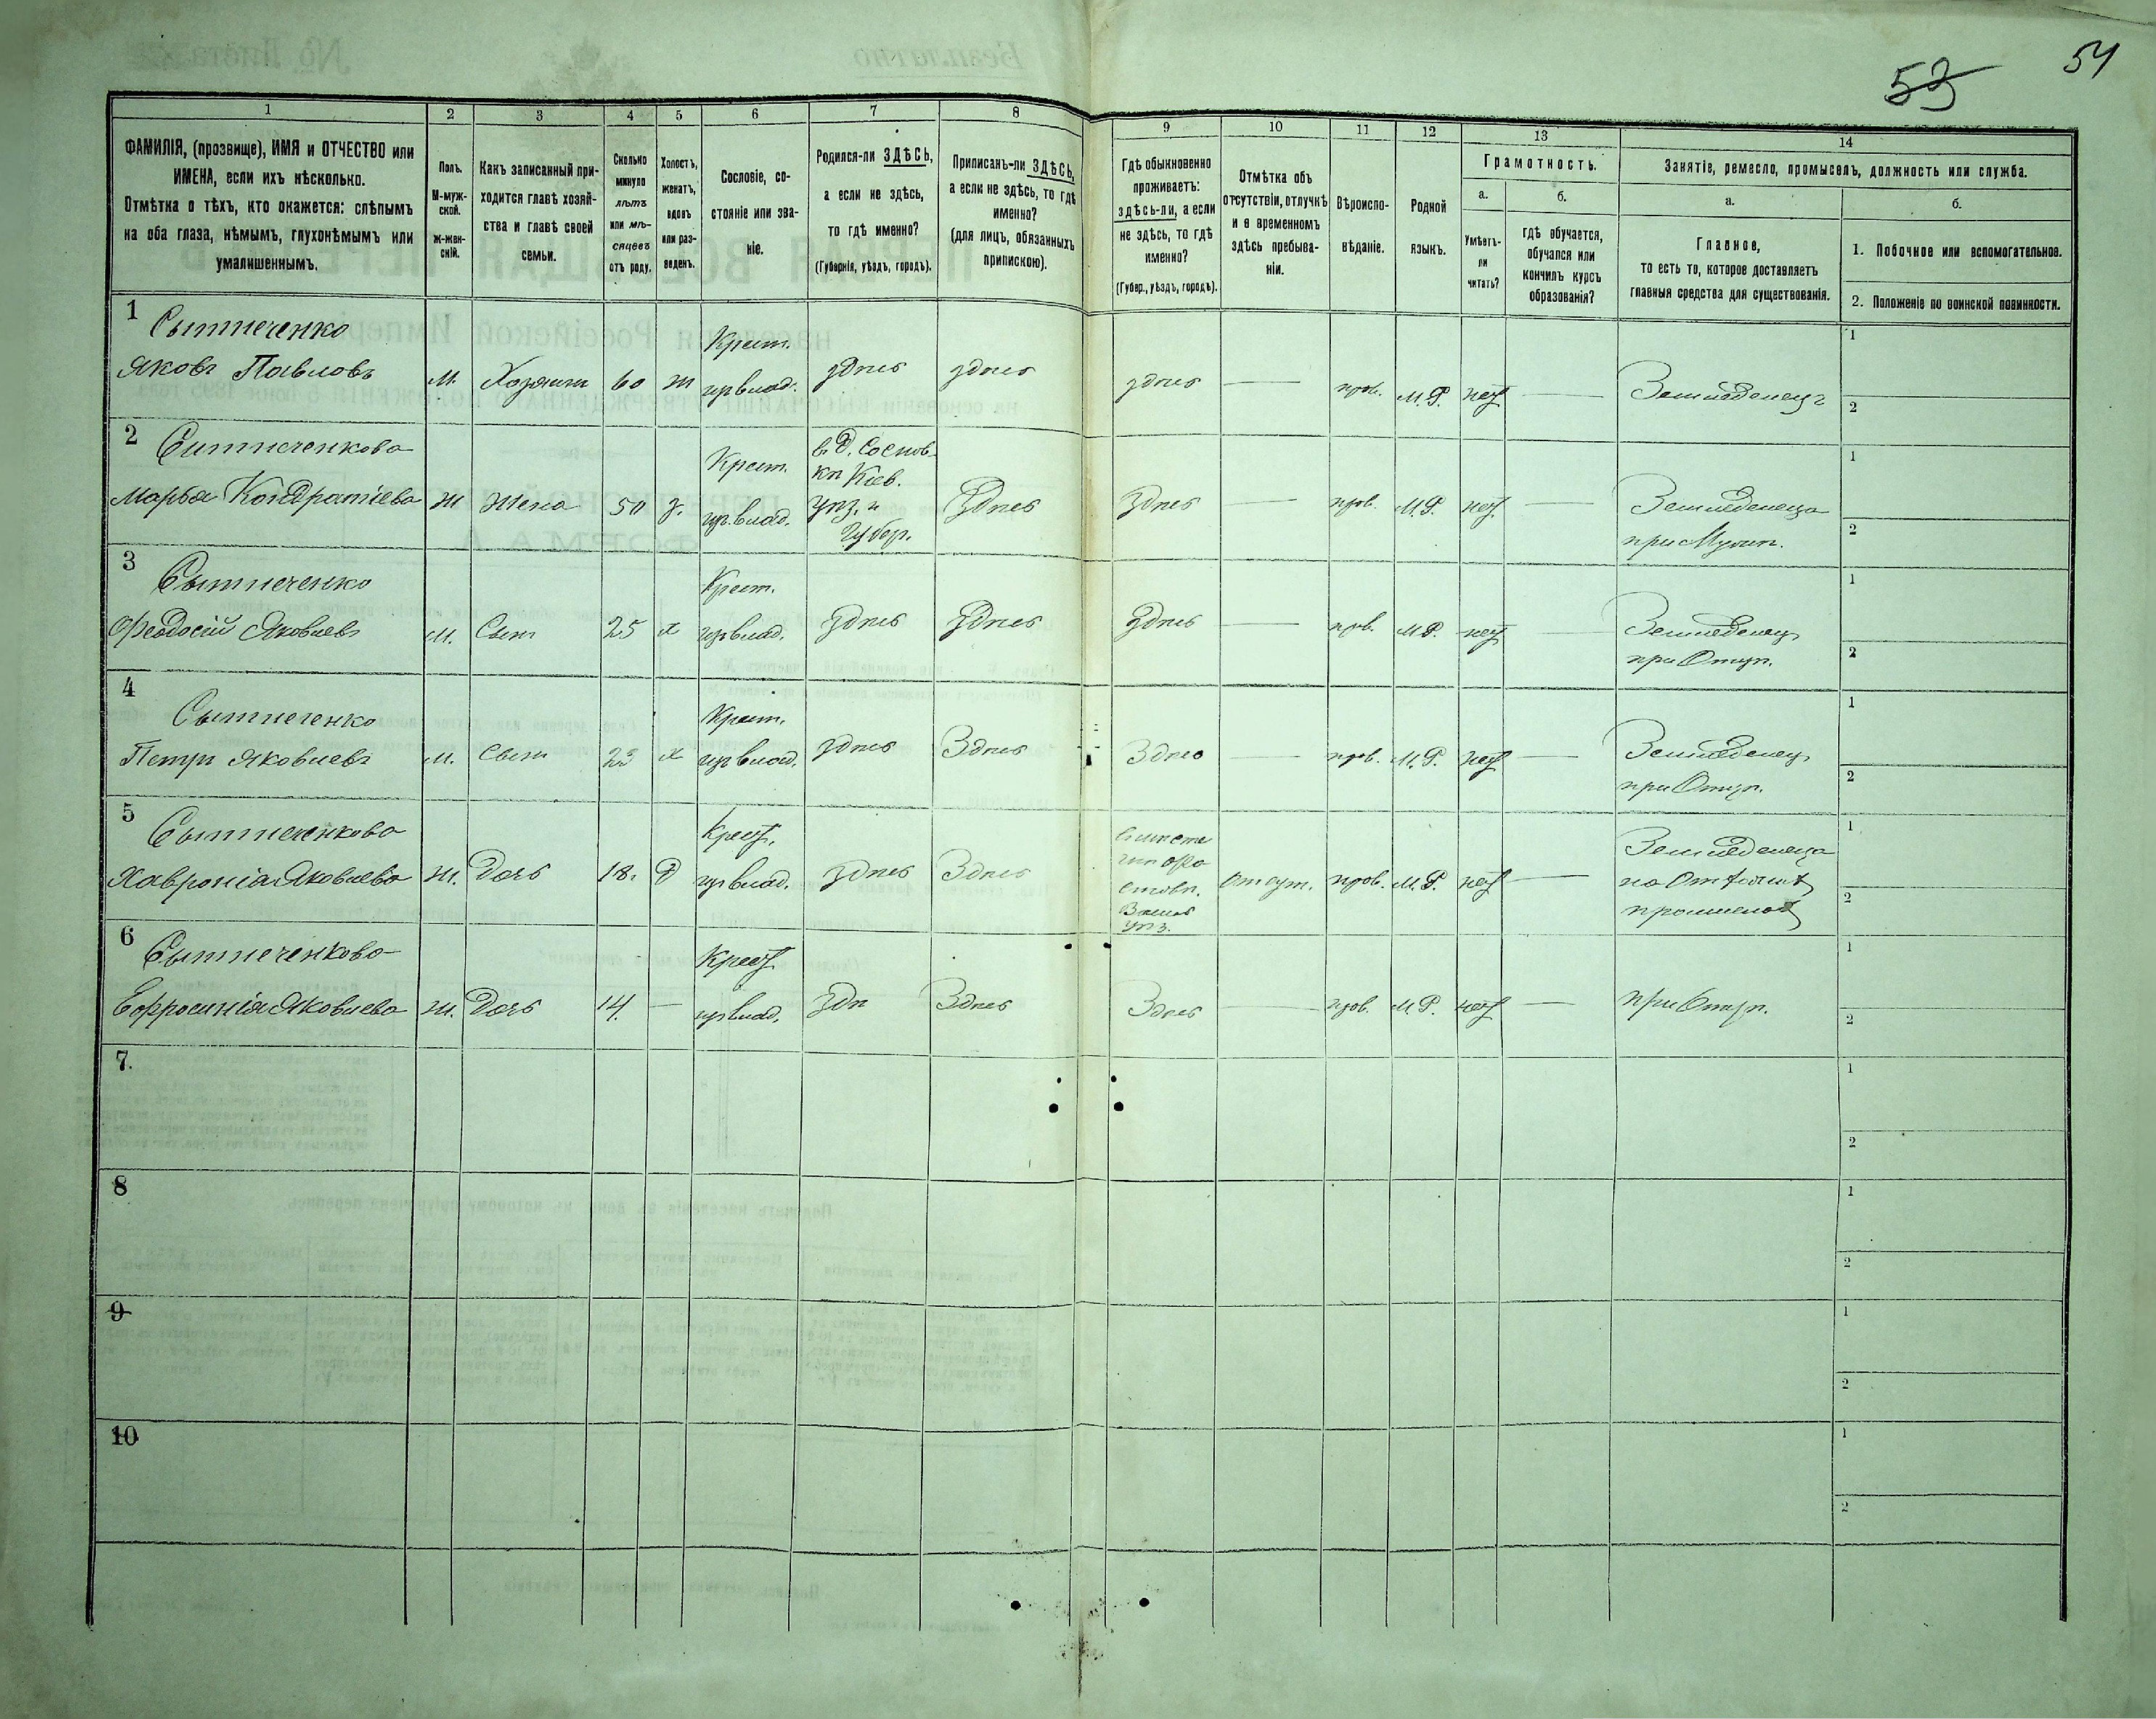 53 54
1 2 3 4 5 6 7 8 9 10 11 12 13 14
ФАМИЛІЯ, (прозвище), ИМЯ и ОТЧЕСТВО или
ИМЕНА, если ихъ нѣсколько.
Отмѣтка о тѣхъ, кто окажется: слѣпымъ
на оба глаза, нѣмымъ, глухонѣмымъ или
умалишеннымъ.
Полъ.
М-муж-
ской.
Ж-жен-
скій.
Какъ записанный при-
ходится главѣ хозяй-
ства и главѣ своей
семьи.
Сколько
минуло
лѣтъ
или мѣ-
сяцевъ
отъ роду.
Холостъ,
женатъ,
вдовъ
или раз-
веденъ.
Сословіе, со-
стояніе или зва-
ніе.
Родился-ли ЗДѢСЬ,
а если не здѣсь,
то гдѣ именно?
(Губернія, уѣздъ, городъ).
Приписанъ-ли ЗДѢСЬ,
а если не здѣсь, то гдѣ
именно?
(для лицъ, обязанныхъ
припискою).
Гдѣ обыкновенно
проживаетъ:
здѣсь-ли, а если
не здѣсь, то гдѣ
именно?
(Губер., уѣздъ, городъ).
Отмѣтка объ
отсутствіи, отлучкѣ
и о временномъ
здѣсь пребыва-
ніи.
Вѣроиспо-
вѣданіе.
Родной
языкъ.
Грамотность.
а. б.
Умѣетъ-
ли
читать?
гдѣ обучается,
обучался или
кончилъ курсъ
образованія?
Занятіе, ремесло, промыселъ, должность или служба.
а. б.
Главное,
то есть то, которое доставляетъ
главныя средства для существованія.
1. Побочное или вспомогательное.
2. Положеніе по воинской повинности.
1 Сытниченко Крест. 1
Яковъ Павловъ м. Хозяинъ 60 ж здѣсь здѣсь здѣсь — прав. М.Р. нѣт — Земледелецъ 2
2 Сытниченкова Крест. в д. Соснов- 1
ки Кіев.
Марья Кондратіева ж жена 50 з. уѣз. и Здѣсь Здѣсь — прав. М.Р. нѣт — Земледелеца
Губер. при Мужѣ. 2
3 Сытниченко Крест. 1
Феодосій Яковлевъ м. Сынъ 25 х здѣсь Здѣсь Здѣсь — прав. М.Р. нѣт — Земледелец
при Отцѣ. 2
4 Сытниченко Крест. 1
Петръ Яковлевъ м. Сынъ 23 х здѣсь Здѣсь Здѣсь — прав. М.Р. нѣт — Земледелец
при Отцѣ. 2
5 Сытниченкова Крест. 1
Земледелеца
Хавронія Яковлева ж. Дочь 18. д здѣсь Здѣсь Отсут. прав. М.Р. нѣт —
уѣз. 2
6 Сытниченкова Крест. 1
Ефросинія Яковлева ж. Дочь 14. — здѣ Здѣсь Здѣсь — прав. М.Р. нѣт — при Отцѣ. 2
7. 1
2
8 1
2
9 1
2
10 1
2